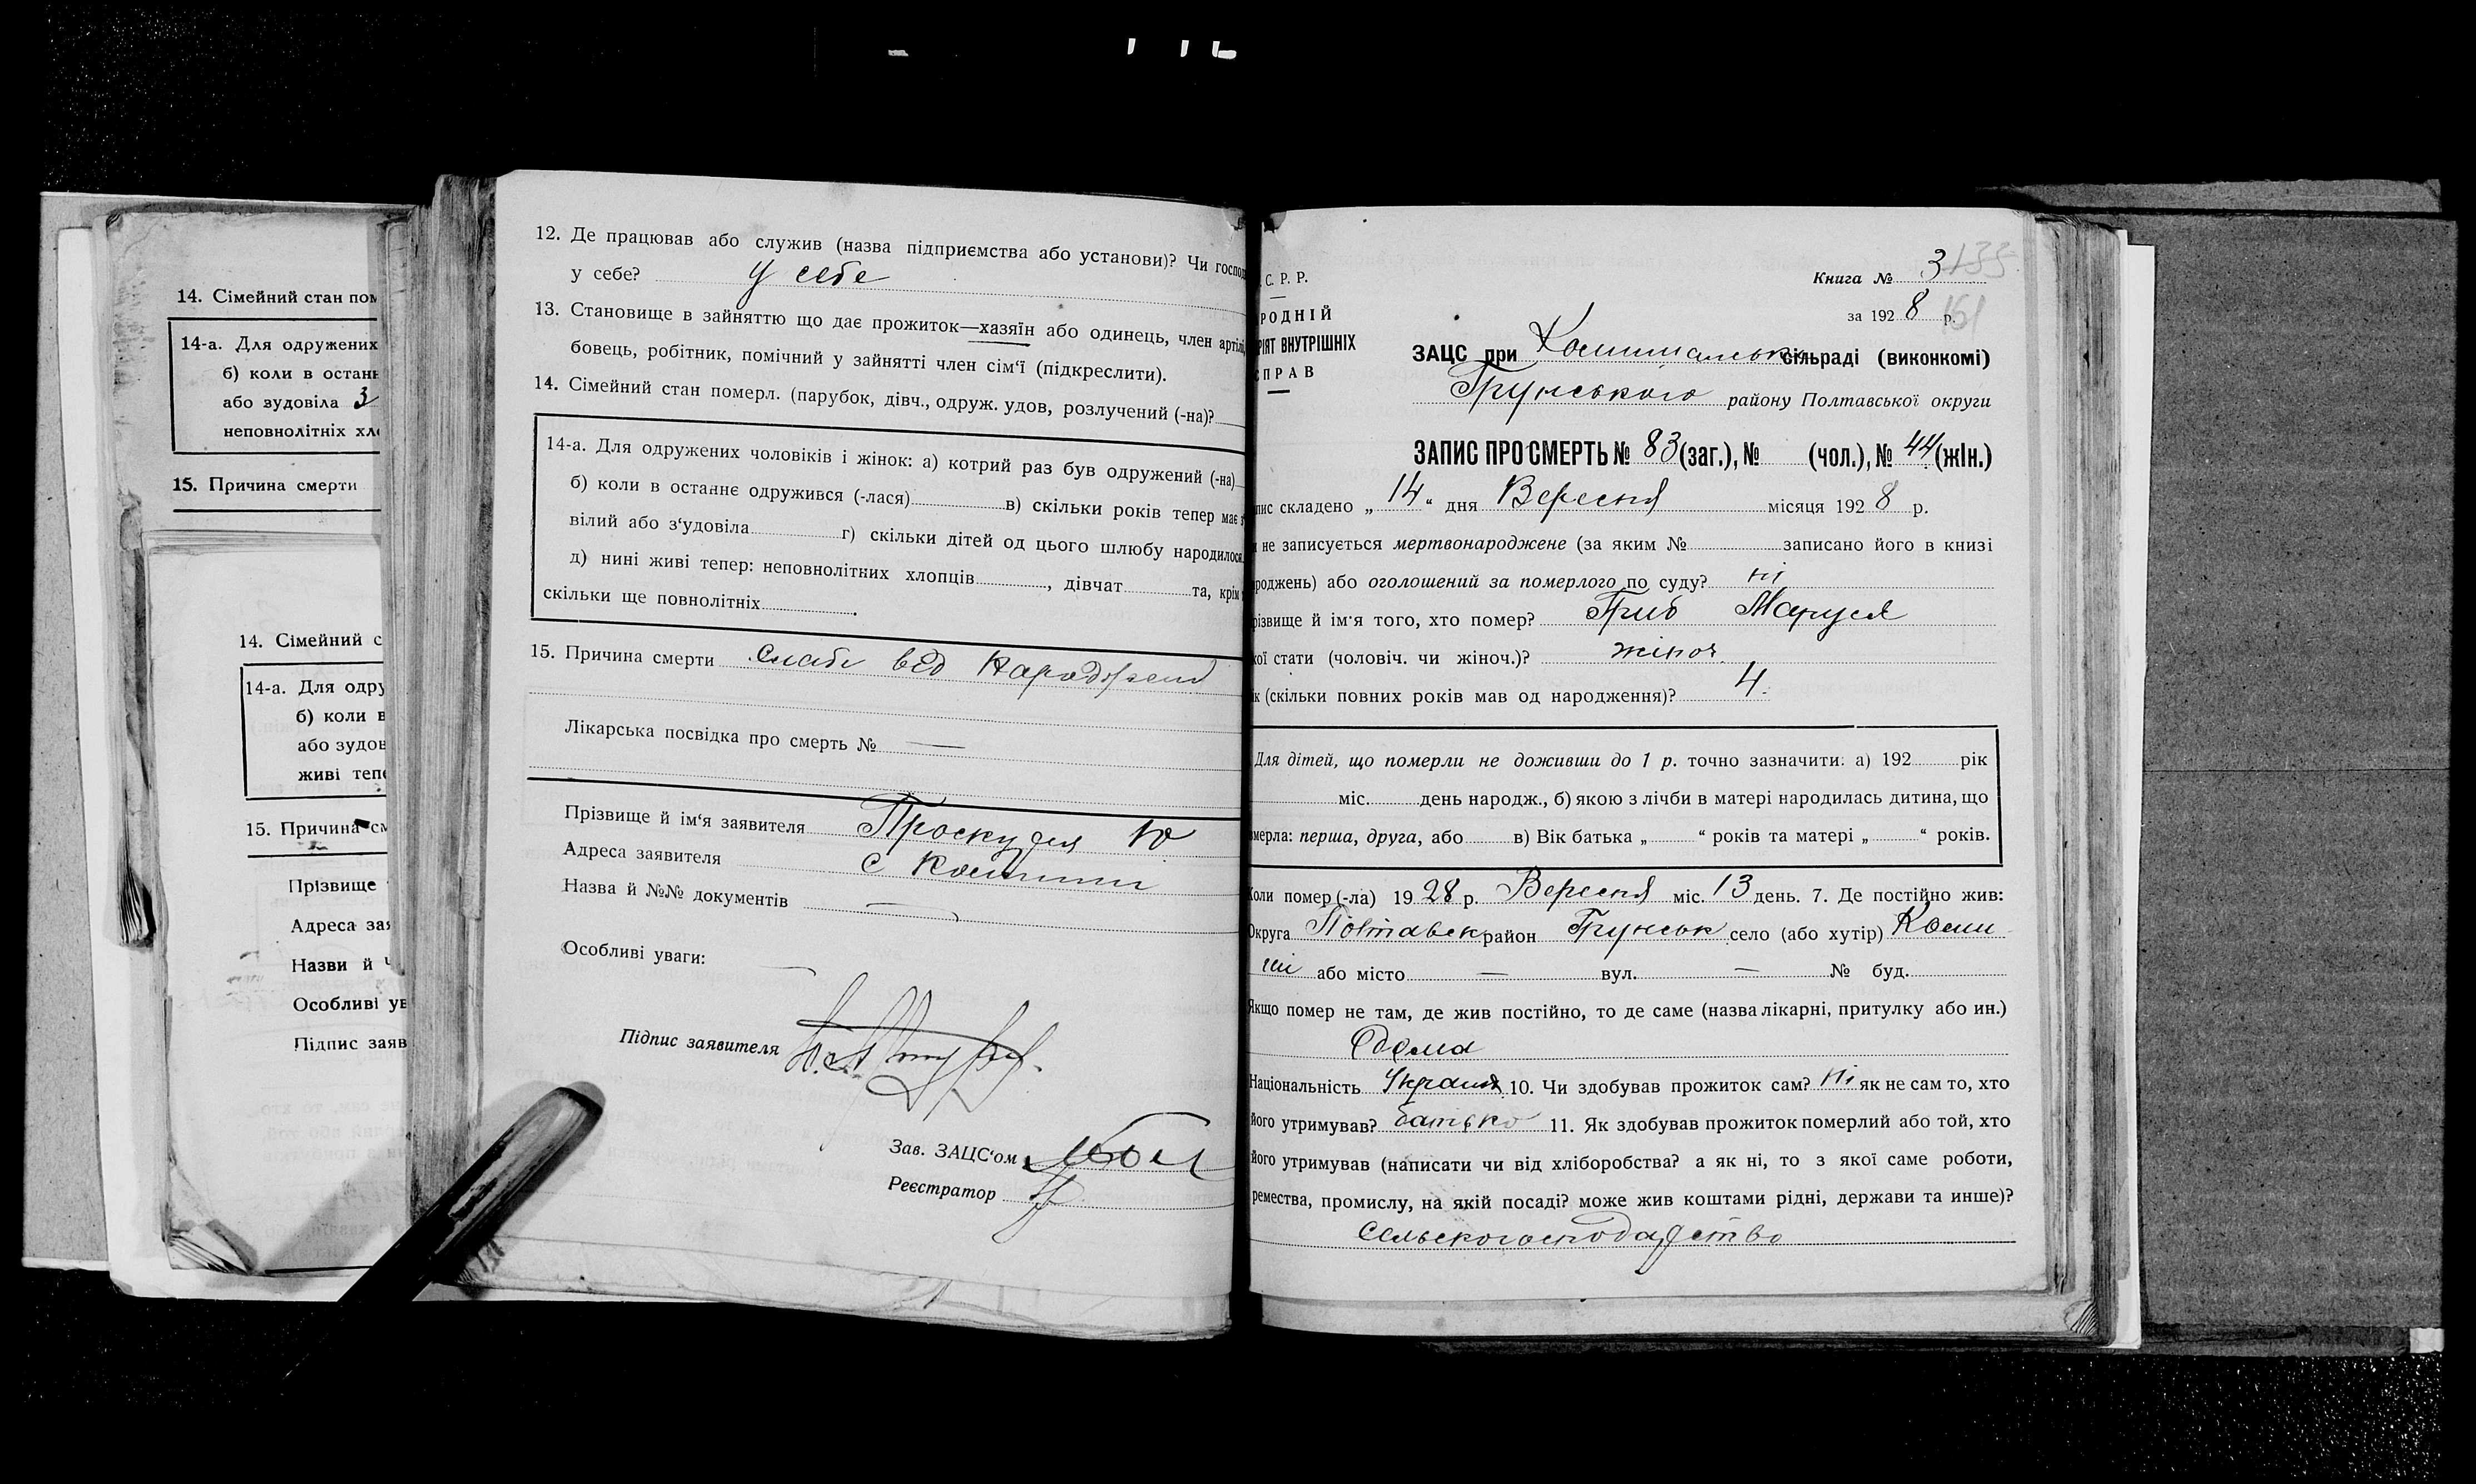 14. Сімейний стан пом
14-а. Для одружених
б) коли в останн
або зудовіла 3
неповнолітніх хл
15. Причина смерти
14. Сімейний с
14-а. Для одру
б) коли в
або зудов
живі тепе
15. Причина см
Прізвище
Адреса зая
Назви й
Особливі ув
Підпис заяв
12. Де працював або служив (назва підприємства або установи)? Чи господ
у себе? У себе
13. Становище в зайняттю що дає прожиток—хазяїн або одинець, член артілі
бовець, робітник, помічний у зайнятті член сім'ї (підкреслити).
14. Сімейний стан померл. (парубок, дівч., одруж. удов, розлучений (-на)?
14-а. Для одружених чоловіків і жінок: а) котрий раз був одружений (-на)
б) коли в останнє одружився (-лася) в) скільки років тепер має з
вілий або з'удовіла г) скільки дітей од цього шлюбу народилося
д) нині живі тепер: неповнолітних хлопців , дівчат та, крім
скільки ще повнолітніх .
15. Причина смерти від
Лікарська посвідка про смерть № —
Прізвище й ім'я заявителя
Адреса заявителя с
Назва й №№ документів —
Особливі уваги: —
Підпис заявителя
Зав. ЗАЦС'ом
Реєстратор
. С. Р. Р.
РОДНІЙ
РІЯТ ВНУТРІШНІХ
СПРАВ
Книга № 3 133
за 192 8 р. 161
ЗАЦС при сільраді (виконкомі)
Грунського району Полтавської округи
ЗАПИС ПРО СМЕРТЬ № 83 (заг.), № (чол.), № 44 (жін.)
пис складено „ 14 " дня Вересня місяця 192 8 р.
и не записується мертвонароджене (за яким № записано його в книзі
роджень) або оголошений за померлого по суду? ні
різвище й ім'я того, хто помер? Гриб Маруся
кої стати (чоловіч. чи жіноч.)? жіноч.
ік (скільки повних років мав од народження)? 4.
Для дітей, що померли не доживши до 1 р. точно зазначити: а) 192 рік
міс. день народж., б) якою з лічби в матері народилась дитина, що
мерла: перша, друга, або в) Вік батька „ " років та матері „ " років.
Коли помер (-ла) 19 28 р. Вересня міс. 13 день. 7. Де постійно жив:
Округа Полтавськ район Грунськ село (або хутір)
або місто — вул. — № буд.
Якщо помер не там, де жив постійно, то де саме (назва лікарні, притулку або ин.)
Вдома
Національність 10. Чи здобував прожиток сам? Ні як не сам то, хто
його утримував? батько 11. Як здобував прожиток померлий або той, хто
його утримував (написати чи від хліборобства? а як ні, то з якої саме роботи,
ремества, промислу, на якій посаді? може жив коштами рідні, держави та инше)?